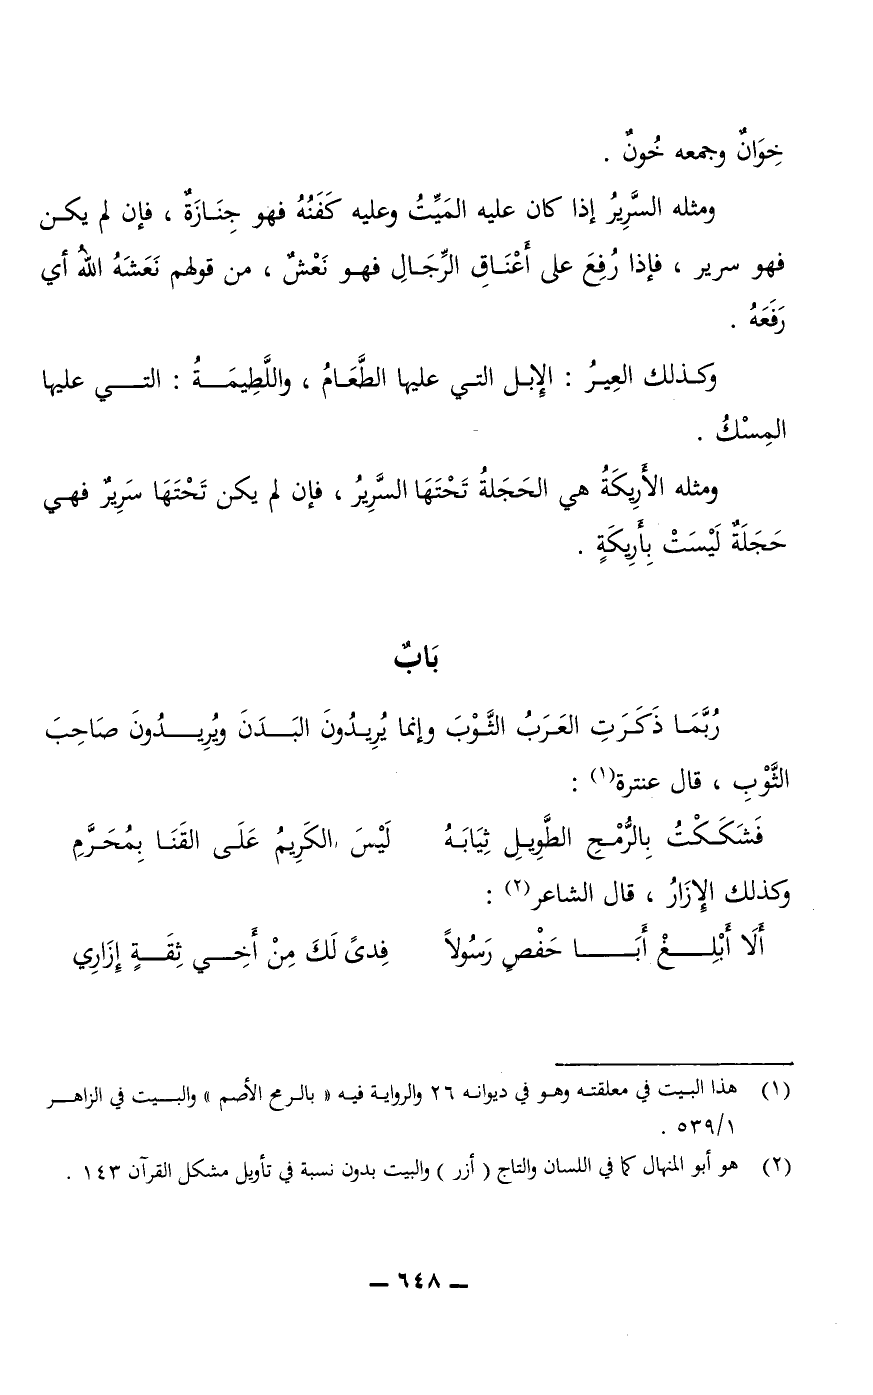 خِوَانٌ وجمعه خُونٌ .
ومثله السَّرِيرُ إذا كان عليه المَيِّتُ وعليه كَفَنُهُ فهو جِنَازَةٌ ، فإن لم يكن
فهو سرير ، فإذا رُفِعَ على أَعْنَاقِ الرِّجَالِ فهو نَعْشٌ ، من قولهم نَعَشَهُ اللهُ أي
رَفَعَهُ .
وكذلك العِيرُ : الإبل التي عليها الطَّعَامُ ، واللَّطِيمَةُ : التي عليها
المِسْكُ .
ومثله الأَرِيكَةُ هي الحَجَلةُ تَحْتَهَا السَّرِيرُ ، فإن لم يكن تَحْتَهَا سَرِيرٌ فهي
حَجَلَةٌ لَيْسَتْ بِأَرِيكَةٍ .
بَابٌ
رُبَّمَا ذَكَرَتِ العَرَبُ الثَّوْبَ وإنما يُرِيدُونَ البَدَنَ ويُرِيدُونَ صَاحِبَ
الثَّوْبِ ، قال عنترة(١) :
فَشَكَكْتُ بِالرُّمْحِ الطَّوِيلِ ثِيَابَهُ لَيْسَ الكَرِيمُ عَلَى القَنَا بِمُحَرَّمِ
وكذلك الإِزَارُ ، قال الشاعر(٢) :
أَلَا أَبْلِغْ أَبَا حَفْصٍ رَسُولاً فِدىً لَكَ مِنْ أَخِي ثِقَةٍ إِزَارِي
(١) هذا البيت في معلقته وهو في ديوانه ٢٦ والرواية فيه « بالرمح الأصم » والبيت في الزاهر
٥٣٩/١ .
(٢) هو أبو المنهال كما في اللسان والتاج ( أزر ) والبيت بدون نسبة في تأويل مشكل القرآن ١٤٣ .
ـ ٦٤٨ ـ